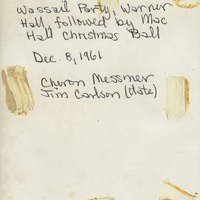 Wassail Party, Warner
Hall followed by Mac
Hall Christmas Ball
Dec. 8, 1961
Cheron Messmer
Jim Carlson (date)